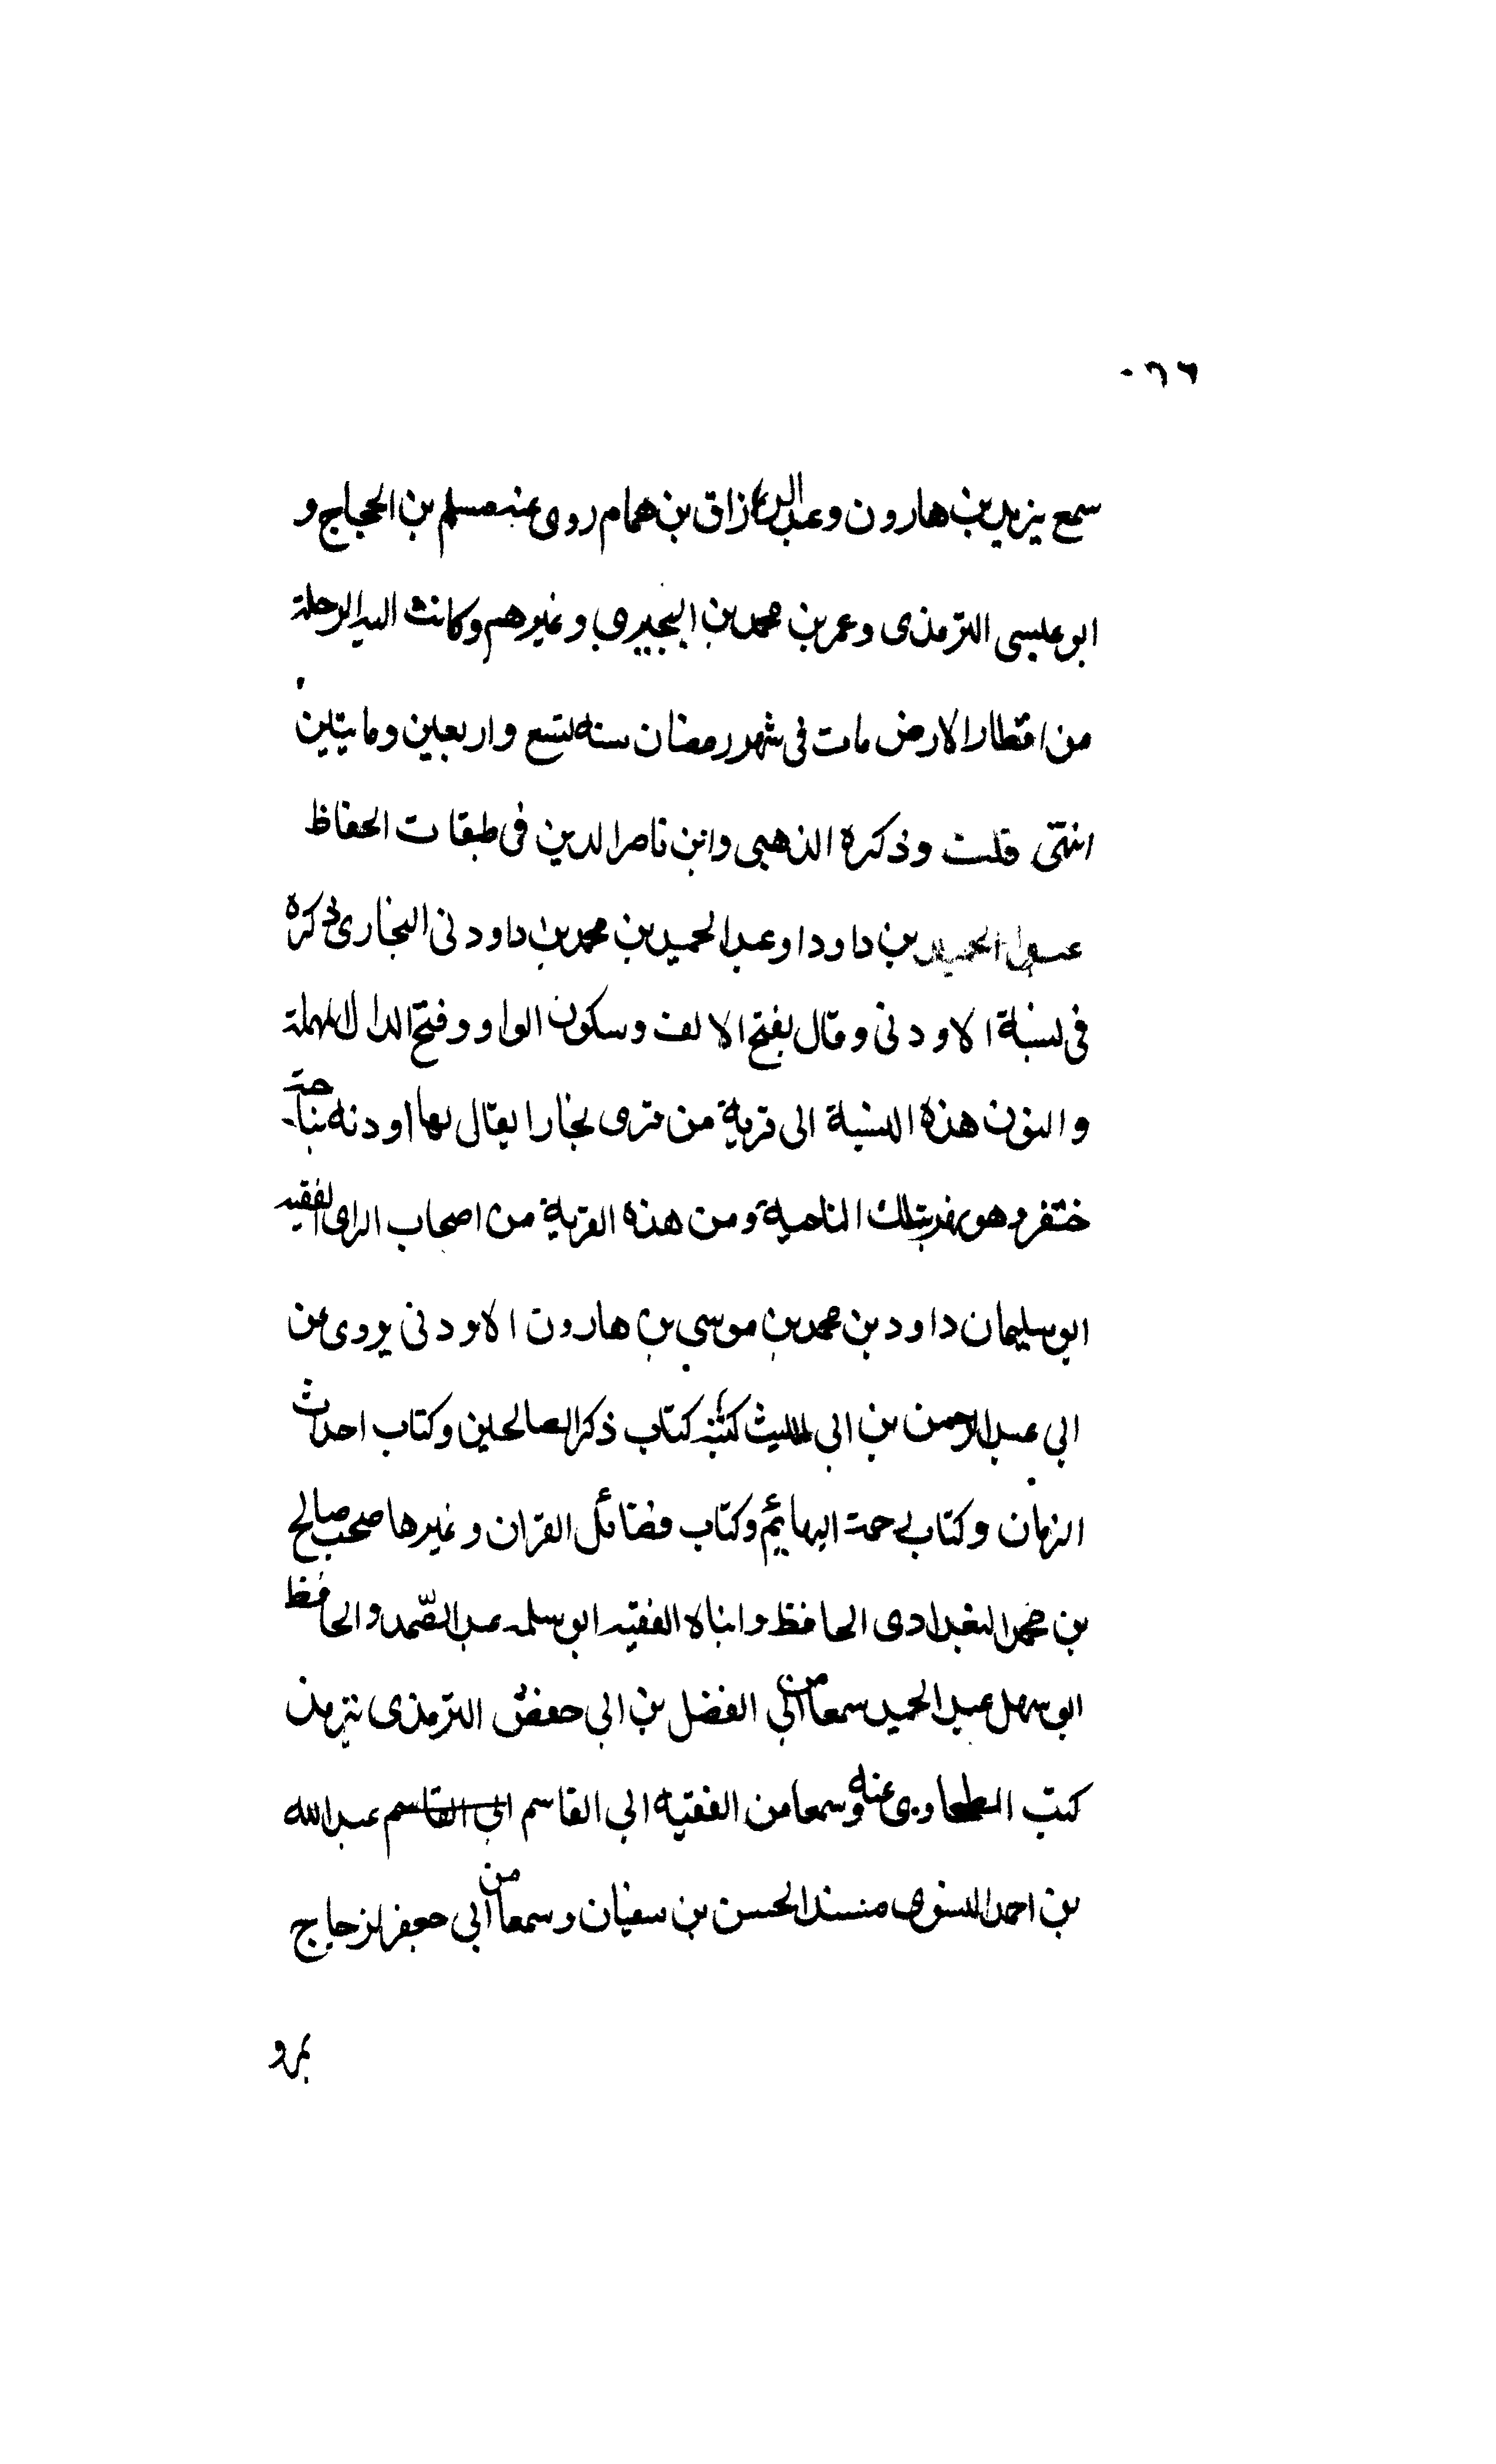 ٠٦٦
سمع يزيد بن هارون وعبد الرزاق بن همام روى عنه مسلم بن الحجاج و
ابو عيسى الترمذى وعمر بن محمد بن البجيرى وغيرهم وكانت اليه الرحلة
من اقطار الارض مات فى شهر رمضان سنه تسع واربعين ومايتين
انتهى قلت وذكره الذهبى وابن ناصر الدين فى طبقات الحفاظ
عبد الحميد بن داود او عبد الحميد بن محمد بن داودنى البخارى ذكره
فى نسبة الاودنى وقال بفتح الالف وسكون الواو وفتح الدال المهملة
والنون هذه النسبة الى قرية من قرى بخارا يقال لها اودنه بناحية
ختفر وهو نهر بتلك الناحية ومن هذه القرية من اصحاب الراى الفقيه
ابو سليمان داود بن محمد بن موسى بن هارون الاودنى يروى عن
ابى عبد الرحمن بن ابى الليث كتبه كتاب ذكر الصالحين وكتاب احداث
الزمان وكتاب رحمة البهائم وكتاب فضائل القران وغيرها صحب صالح
بن محمد البغدادى الحافظ وابناه الفقيه ابو سلمه عبد الصمد والحافظ
ابو سهل عبد الحميد سمعا من ابى الفضل بن ابى حفص الترمذى بترمذ
كتب الطحاوى عنه وسمعا من الفقيه ابى القاسم ابى القاسم عبد الله
بن احمد النسوى مسند الحسن بن سفيان وسمعا من ابى جعفر الزجاج
بمرو